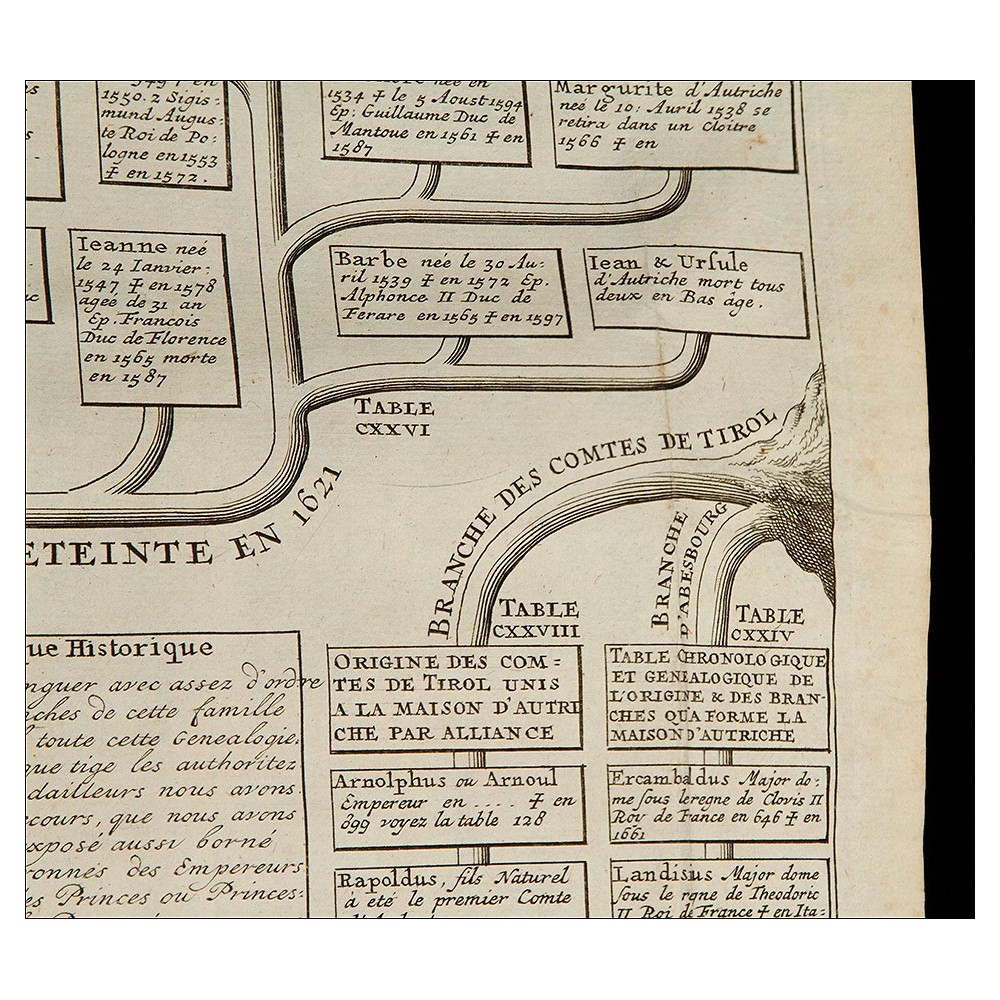 1550. 2 Sigis:
mund Augus:
te Roi de Po:
logne en 1553
‡ en 1572.
née en
1534 ‡ le 5 Aoust 1594
Ep: Guillaume Duc de
Mantoue en 1561 ‡ en
1587
Margurite d'Autriche
neé le 10: Auril 1538 se
retira dans un Cloitre
1566 ‡ en
Ieanne neé
le 24 Ianvier:
1547 ‡ en 1578
agée de 31 an
Ep. Francois
Duc de Florence
en 1565 morte
en 1587
Barbe née le 30 Au:
ril 1539 ‡ en 1572 Ep.
Alphonce II Duc de
Ferare en 1565 ‡ en 1597
Iean & Ursule
d'Autriche mort tous
deux en Bas âge.
TABLE
CXXVI
ETEINTE EN 1621
BRANCHE DES COMTES DE TIROL
BRANCHE
D'ABESBOURG
TABLE
CXXVIII
ORIGINE DES COM=
TES DE TIROL UNIS
A LA MAISON D'AUTRI
CHE PAR ALLIANCE
Arnolphus ou Arnoul
Empereur en .... ‡ en
899 voyez la table 128
Rapoldus, fils Naturel
à eté le premier Comte
TABLE
CXXIV
TABLE CHRONOLOGIQUE
ET GENEALOGIQUE DE
L'ORIGINE & DES BRAN-
CHES QU'A FORME LA
MAISON D'AUTRICHE
Ercambadus Major do:
me sous le regne de Clovis II
Roy de Fance en 646 ‡ en
1661
Landisius Major dome
sous le rgne de Theodoric
II Roi de France ‡ en Ita:
que Historique
nguer avec assez d'ordre
nches de cette famille
toute cette Genealogie,
que tige les authoritez
dailleurs nous avons
cours, que nous avons
xposé aussi borné
ronnés des Empereurs
es Princes ou Princes: